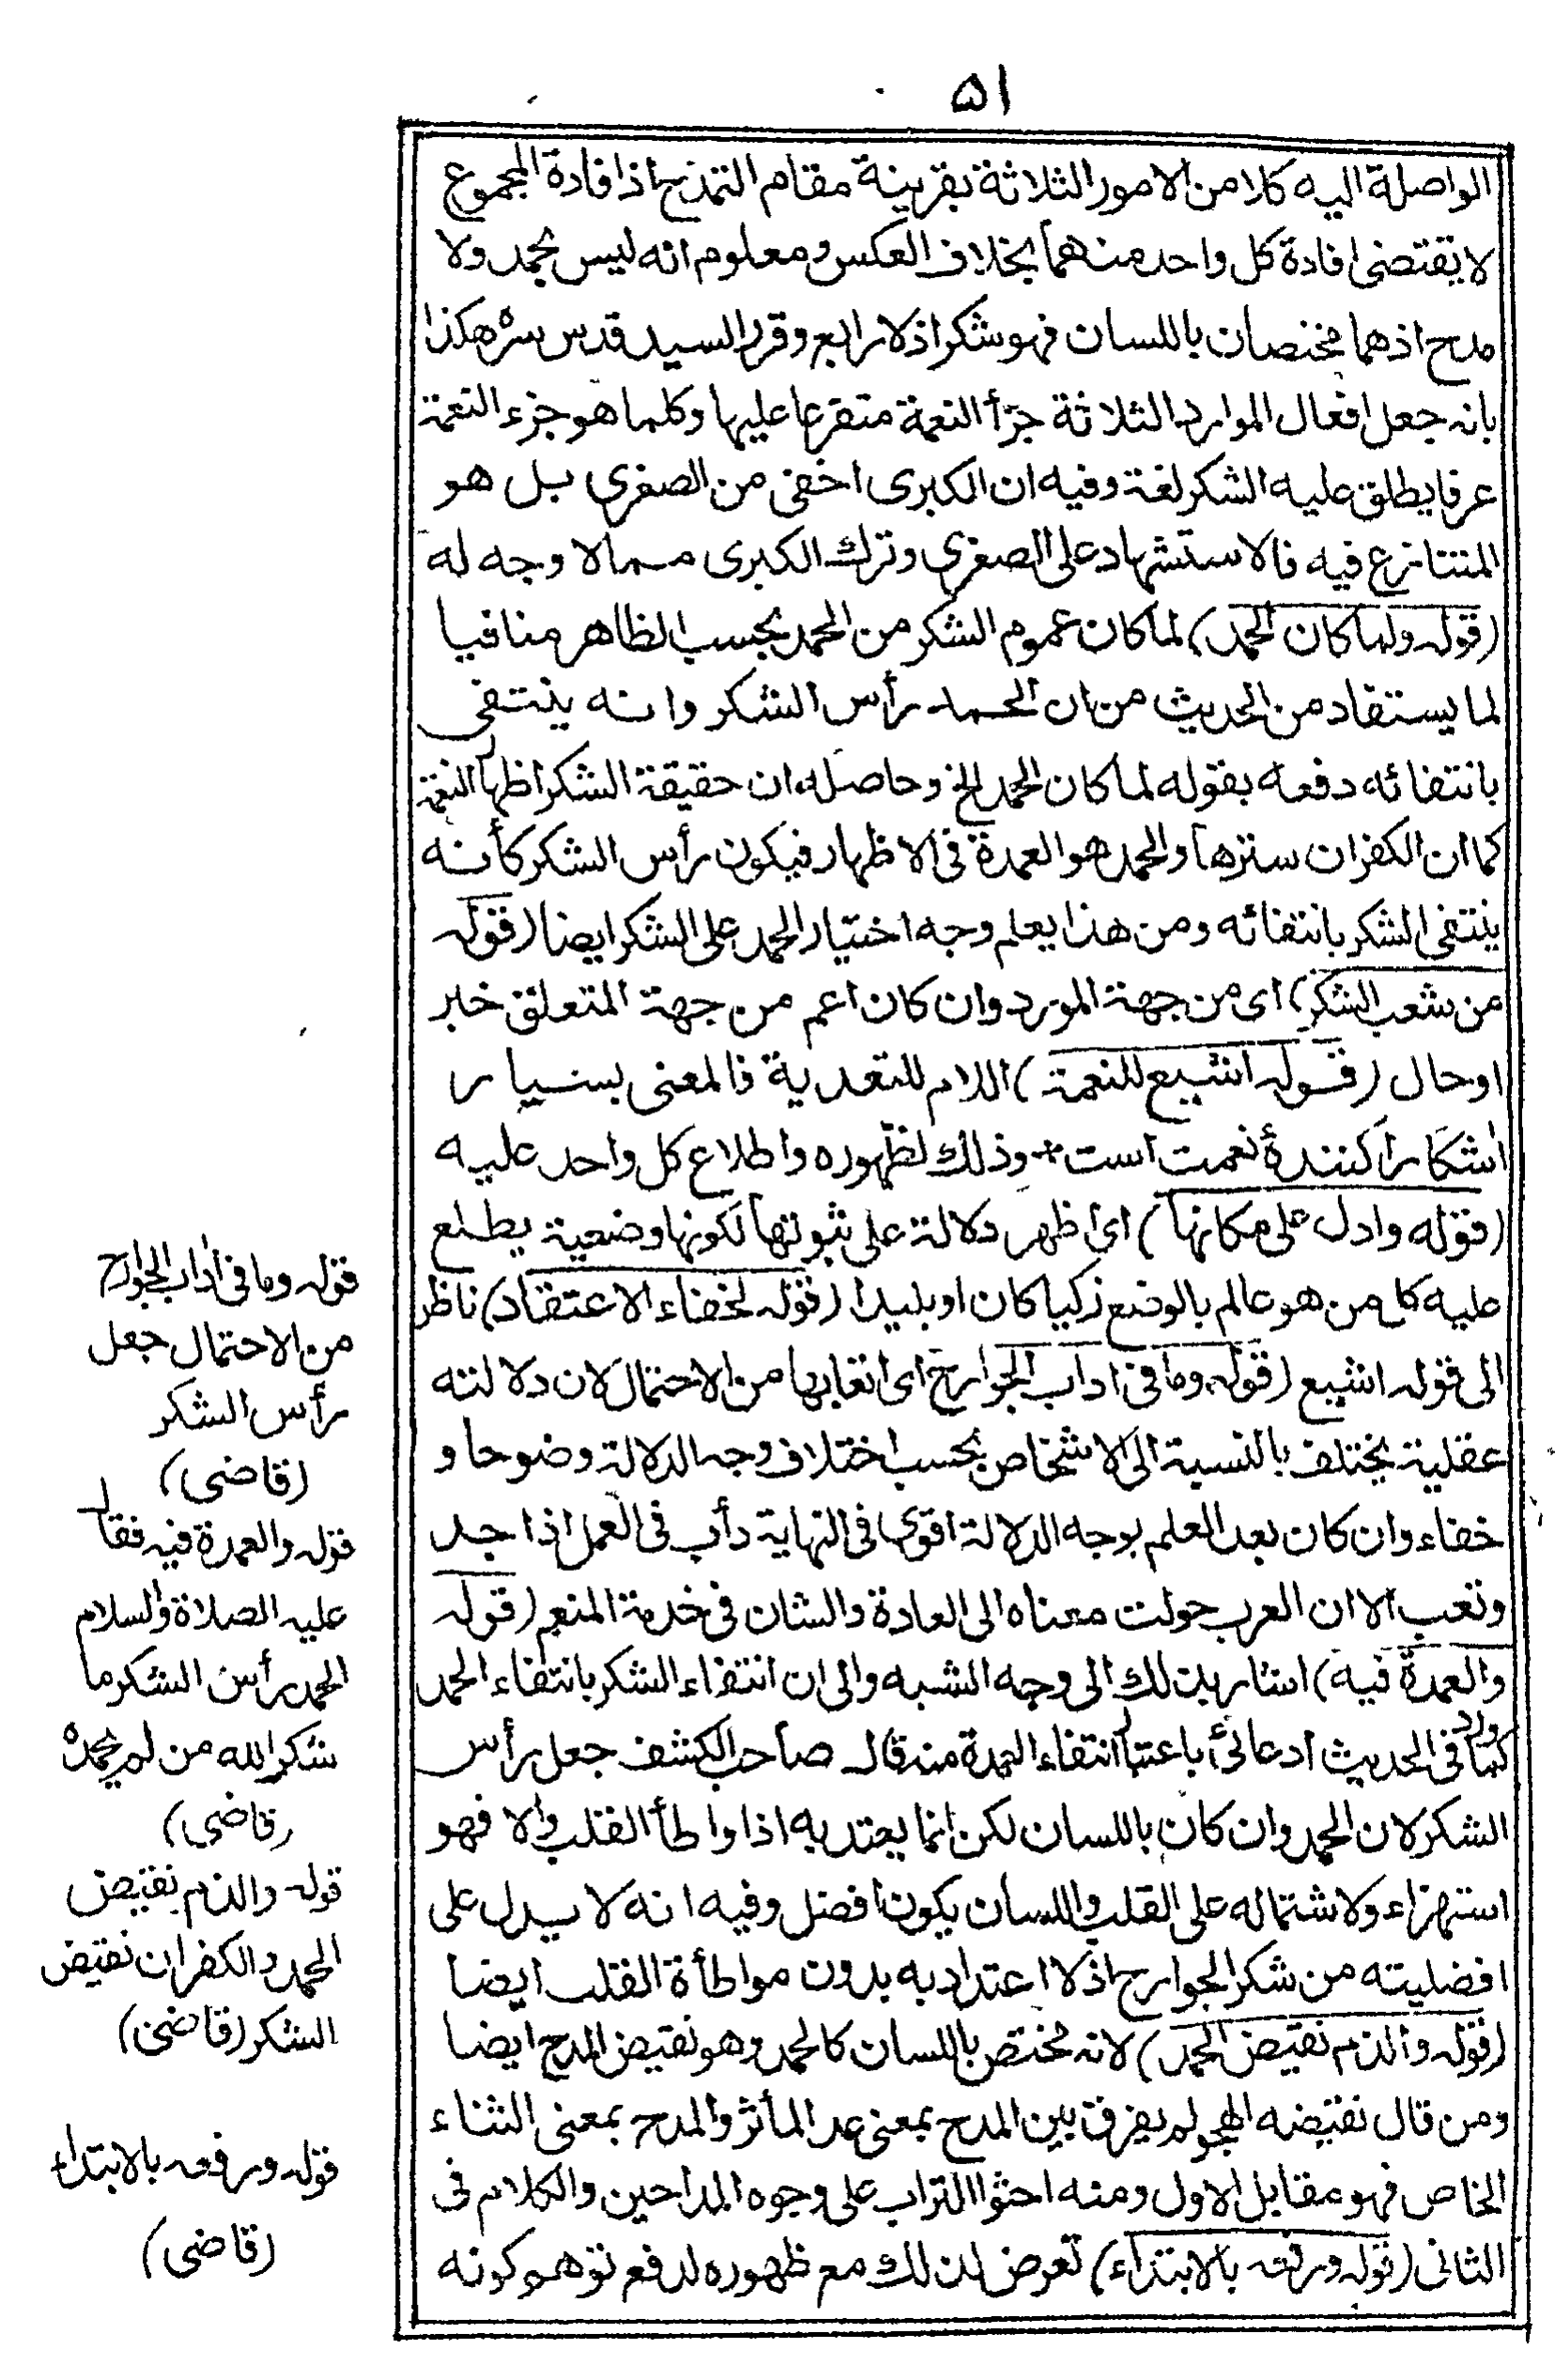 ٥١
الواصلة اليه كلا من الامور الثلاثة بقرينة مقام التمدح اذ افادة المجموع
لا يقتضى افادة كل واحد منهما بخلاف العكس ومعلوم انه ليس بحمد ولا
مدح اذ هما مختصان باللسان فهو شكر اذ لا رابع وقرر السيد قدس سره هكذا
بانه جعل افعال الموارد الثلاثة جزأ النعمة متفرعا عليها وكلما هو جزء النعمة
عرفا يطلق عليه الشكر لغة وفيه ان الكبرى اخفى من الصغرى بل هو
المتنازع فيه فالاستشهاد على الصغرى وترك الكبرى مما لا وجه له
(قوله ولما كان الحمد) لما كان عموم الشكر من الحمد بحسب الظاهر منافيا
لما يستفاد من الحديث من ان الحمد رأس الشكر وانه ينتفى
بانتفائه دفعه بقوله لما كان الحمد الخ وحاصله ان حقيقة الشكر اظهار النعمة
كما ان الكفران سترها والحمد هو العمدة فى الاظهار فيكون رأس الشكر كأنه
ينتفى الشكر بانتفائه ومن هذا يعلم وجه اختيار الحمد على الشكر ايضا (قوله
من شعب الشكر) اى من جهة المورد وان كان اعم من جهة المتعلق خبر
او حال (قوله اشيع للنعمة) اللام للتعدية فالمعنى بسيار
اشكارا كنندۀ نعمت است وذلك لظهوره واطلاع كل واحد عليه
(قوله وادل على مكانها) اى اظهر دلالة على ثبوتها لكونها وضعية يطلع
عليه كل من هو عالم بالوضع زكيا كان او بليدا (قوله لخفاء الاعتقاد) ناظر
الى قوله اشيع (قوله وما فى اداب الجوارح) اى اتعابها من الاحتمال لان دلالته
عقلية يختلف بالنسبة الى الاشخاص بحسب اختلاف وجه الدلالة وضوحا و
خفاء وان كان بعد العلم بوجه الدلالة اقوى فى النهاية دأب فى العمل اذا جد
وتعب الا ان العرب حولت معناه الى العادة والشان فى خدمة المنعم (قوله
والعمدة فيه) اشار بذلك الى وجه الشبه والى ان انتفاء الشكر بانتفاء الحمد
كما ورد فى الحديث ادعائى باعتبار انتفاء العمدة منه قال صاحب الكشف جعل رأس
الشكر لان الحمد وان كان باللسان لكن انما يعتد به اذا واطأ القلب والا فهو
استهزاء ولاشتماله على القلب واللسان يكون افضل وفيه انه لا يدل على
افضليته من شكر الجوارح اذ لا اعتداد به بدون مواطأة القلب ايضا
(قوله والذم نقيض الحمد) لانه مختص باللسان كالحمد وهو نقيض المدح ايضا
ومن قال نقيضه الهجو لم يفرق بين المدح بمعنى عد المأثر والمدح بمعنى الثناء
الخاص فهو مقابل الاول ومنه احثوا التراب على وجوه المداحين والكلام فى
الثانى (قوله ورفعه بالابتداء) تعرض لذلك مع ظهوره لدفع توهم كونه
قوله وما فى اداب الجوارح
من الاحتمال جعل
رأس الشكر
(قاضى)
قوله والعمدة فيه فقال
عليه الصلاة والسلام
الحمد رأس الشكر ما
شكر الله من لم يحمده
(قاضى)
قوله والذم نقيض
الحمد والكفران نقيض
الشكر (قاضى)
قوله ورفعه بالابتداء
(قاضى)